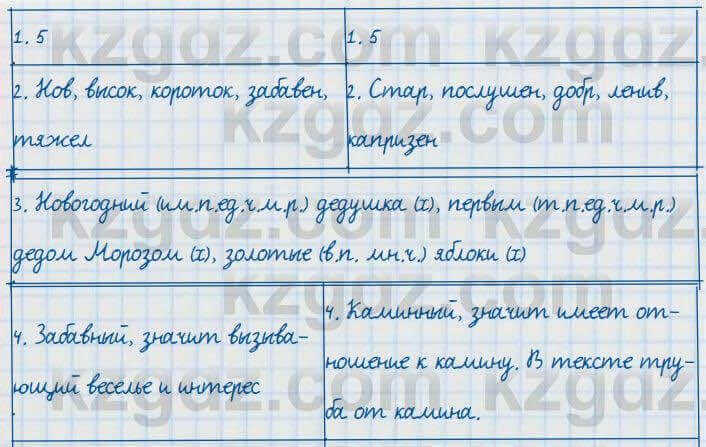 1. 5
1. 5
2. Нов, высок, короток, забавен,
тяжел
2. Стар, послушен, добр, ленив,
капризен
3. Новогодний (им.п.ед.ч.м.р.) дедушка (х), первым (т.п.ед.ч.м.р.)
дедом Морозом (х), золотые (в.п. мн.ч.) яблоки (х)
4. Забавный, значит вызыва-
ющий веселье и интерес
4. Каминный, значит имеет от-
ношение к камину. В тексте тру-
ба от камина.
kzgdz.com
kzgdz.com
kzgdz.com
kzgdz.com
kzgdz.com
kzgdz.com
kzgdz.com
kzgdz.com